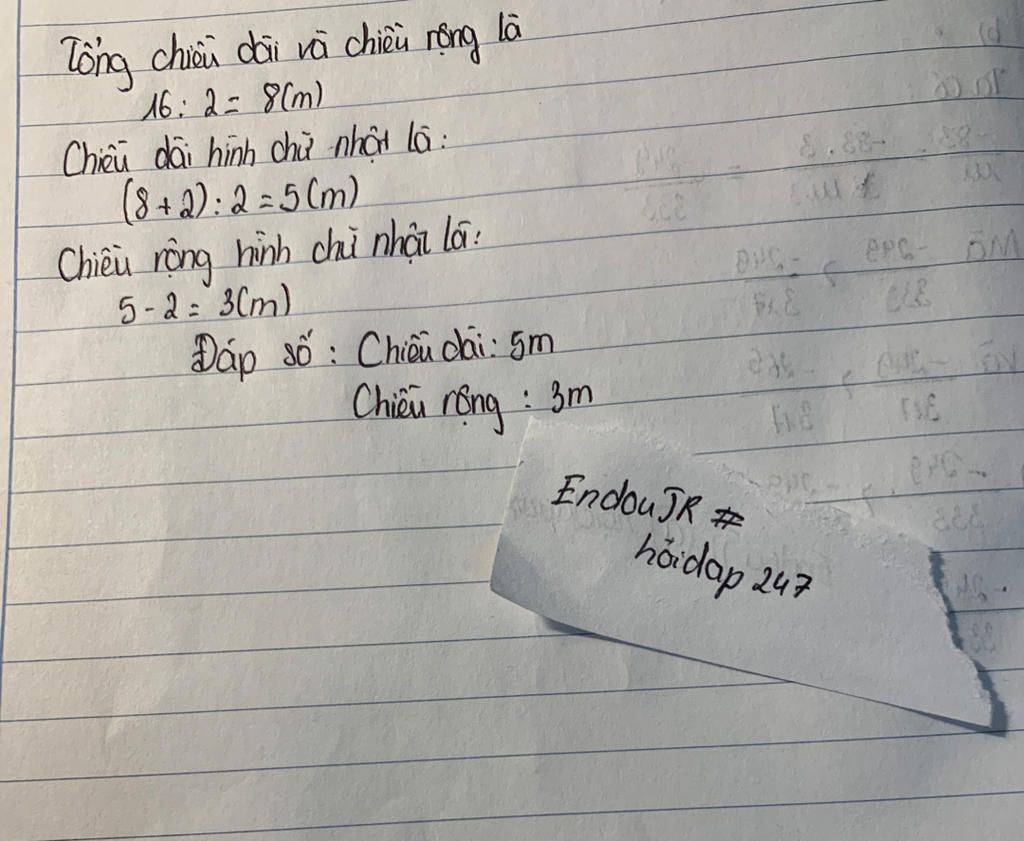 Tổng chiều dài và chiều rộng là
16 : 2 = 8(m)
Chiều dài hình chữ nhật là :
(8 + 2) : 2 = 5 (m)
Chiều rộng hình chữ nhật là :
5 - 2 = 3(m)
Đáp số : Chiều dài : 5m
Chiều rộng : 3m
EndouJR #
hỏidap 247